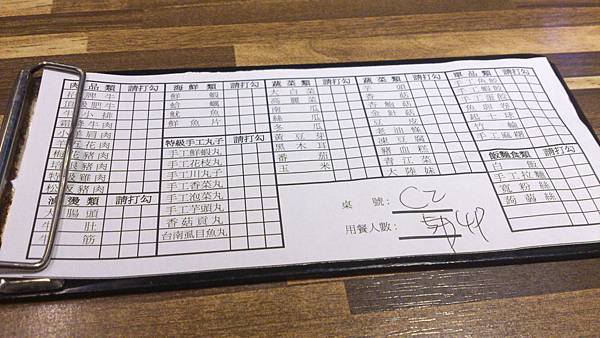 肉品類 請打勾
頂級肥牛
牛小排
霜降牛肉
小羊肩肉
梅花豬肉
松阪豬肉
滷燙類 請打勾
大腸頭
牛肚
牛筋
海鮮類 請打勾
鮮蝦
蛤蠣
魷魚
鮮魚片
特級手工丸子 請打勾
手工鮮蝦丸
手工花枝丸
手工川丸子
手工香菜丸
手工泡菜丸
手工芋頭丸
香菇貢丸
台南虱目魚丸
蔬菜類 請打勾
大白菜
高麗菜
南瓜
絲瓜
冬瓜
黃豆芽
黑木耳
番茄
玉米
蔬菜類 請打勾
芋頭
杏鮑菇
金針菇
豆皮
老油條
凍豆腐
豬血糕
青江菜
大陸妹
單品類 請打勾
手工魚餃
手工蝦餃
手工蛋餃
魚卵卷
起士球
飯麵食類 請打勾
白飯
手工拉麵
寬粉絲
蒟蒻絲
桌號: C2
用餐人數: